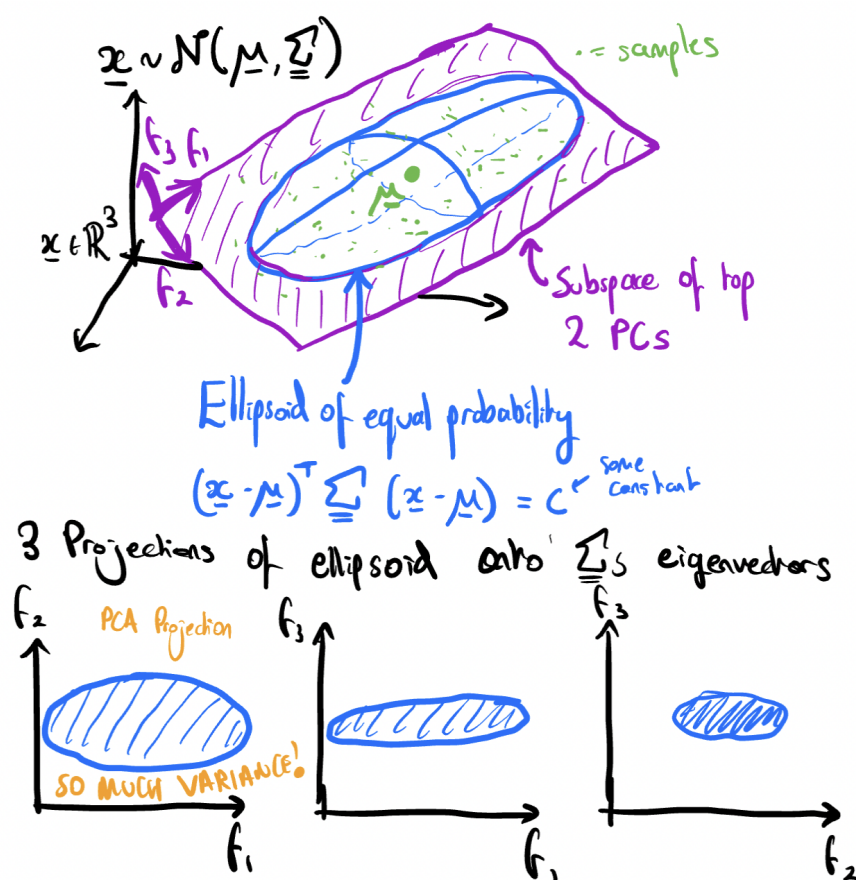 x ~ N(μ, Σ)
· = samples
f₃ f₁
μ
x ∈ ℝ³
f₂
Subspace of top
2 PCs
Ellipsoid of equal probability
(x - μ)ᵀ Σ (x - μ) = C
some
constant
3 Projections of ellipsoid onto Σs eigenvectors
f₂
PCA Projection
f₃
f₃
SO MUCH VARIANCE!
f₁
f₁
f₂